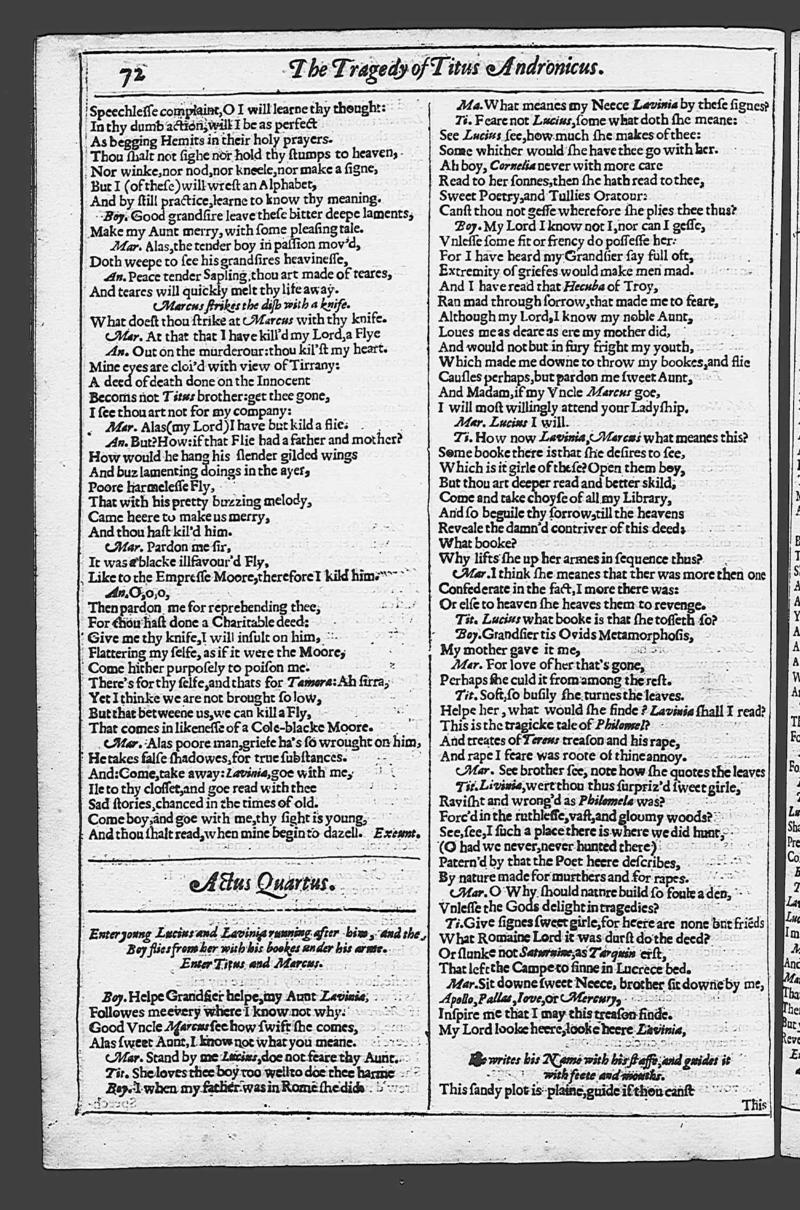 72
The Tragedy of Titus Andronicus.
Speechlesse complaint, O I will learne thy thought:
In thy dumb action, will I be as perfect
As begging Hemits in their holy prayers.
Thou shalt not sighe nor hold thy stumps to heaven,
Nor winke, nor nod, nor kneele, nor make a signe,
But I (of these) will wrest an Alphabet,
And by still practice, learne to know thy meaning.
Boy. Good grandsire leave these bitter deepe laments,
Make my Aunt merry, with some pleasing tale.
Mar. Alas, the tender boy in passion mov'd,
Doth weepe to see his grandsires heavinesse,
An. Peace tender Sapling, thou art made of teares,
And teares will quickly melt thy life away.
Marcus strikes the dish with a knife.
What doest thou strike at Marcus with thy knife.
Mar. At that that I have kill'd my Lord, a Flye
An. Out on the murderour: thou kil'st my heart.
Mine eyes are cloi'd with view of Tirrany:
A deed of death done on the Innocent
Becoms not Titus brother: get thee gone,
I see thou art not for my company:
Mar. Alas (my Lord) I have but kild a flie.
An. But? How: if that Flie had a father and mother?
How would he hang his slender gilded wings
And buz lamenting doings in the ayer,
Poore harmelesse Fly,
That with his pretty buzzing melody,
Came heere to make us merry,
And thou hast kil'd him.
Mar. Pardon me sir,
It was a blacke illfavour'd Fly,
Like to the Empresse Moore, therefore I kild him.
An. O, o, o,
Then pardon me for reprehending thee,
For thou hast done a Charitable deed:
Give me thy knife, I will insult on him,
Flattering my selfe, as if it were the Moore,
Come hither purposely to poison me.
There's for thy selfe, and thats for Tamora: Ah sirra,
Yet I thinke we are not brought so low,
But that betweene us, we can kill a Fly,
That comes in likenesse of a Cole-blacke Moore.
Mar. Alas poore man, griefe ha's so wrought on him,
He takes false shadowes, for true substances.
And: Come, take away: Lavinia, goe with me,
Ile to thy closset, and goe read with thee
Sad stories, chanced in the times of old.
Come boy, and goe with me, thy sight is young,
And thou shalt read, when mine begin to dazell. Exeunt.
Actus Quartus.
Enter young Lucius and Lavinia running after him, and the
Boy flies from her with his bookes under his arme.
Enter Titus and Marcus.
Boy. Helpe Grandsier helpe, my Aunt Lavinia,
Followes me every where I know not why.
Good Vncle Marcus see how swift she comes,
Alas sweet Aunt, I know not what you meane.
Mar. Stand by me Lucius, doe not feare thy Aunt.
Tit. She loves thee boy too well to doe thee harme
Boy. I when my father was in Rome she did.
Ma. What meanes my Neece Lavinia by these signes?
Ti. Feare not Lucius, some what doth she meane:
See Lucius see, how much she makes of thee:
Some whither would she have thee go with her.
Ah boy, Cornelia never with more care
Read to her sonnes, then she hath read to thee,
Sweet Poetry, and Tullies Oratour:
Canst thou not gesse wherefore she plies thee thus?
Boy. My Lord I know not I, nor can I gesse,
Vnlesse some fit or frency do possesse her:
For I have heard my Grandsier say full oft,
Extremity of griefes would make men mad.
And I have read that Hecuba of Troy,
Ran mad through sorrow, that made me to feare,
Although my Lord, I know my noble Aunt,
Loues me as deare as ere my mother did,
And would not but in fury fright my youth,
Which made me downe to throw my bookes, and flie
Causles perhaps, but pardon me sweet Aunt,
And Madam, if my Vncle Marcus goe,
I will most willingly attend your Ladyship.
Mar. Lucius I will.
Ti. How now Lavinia, Marcus what meanes this?
Some booke there is that she desires to see,
Which is it girle of these? Open them boy,
But thou art deeper read and better skild,
Come and take choyse of all my Library,
And so beguile thy sorrow, till the heavens
Reveale the damn'd contriver of this deed.
What booke?
Why lifts she up her armes in sequence thus?
Mar. I think she meanes that ther was more then one
Confederate in the fact, I more there was:
Or else to heaven she heaves them to revenge.
Tit. Lucius what booke is that she tosseth so?
Boy. Grandsier tis Ovids Metamorphosis,
My mother gave it me,
Mar. For love of her that's gone,
Perhaps she culd it from among the rest.
Tit. Soft, so busily she turnes the leaves.
Helpe her, what would she finde? Lavinia shall I read?
This is the tragicke tale of Philomel?
And treates of Tereus treason and his rape,
And rape I feare was roote of thine annoy.
Mar. See brother see, note how she quotes the leaves
Tit. Livinia, wert thou thus surpriz'd sweet girle,
Ravisht and wrong'd as Philomela was?
Forc'd in the ruthlesse, vast, and gloumy woods?
See, see, I such a place there is where we did hunt,
(O had we never, never hunted there)
Patern'd by that the Poet heere describes,
By nature made for murthers and for rapes.
Mar. O Why should natnre build so foule a den,
Vnlesse the Gods delight in tragedies?
Ti. Give signes sweet girle, for heere are none bnt friēds
What Romaine Lord it was durst do the deed?
Or slunke not Saturnine, as Tarquin erst,
That left the Campe to sinne in Lucrece bed.
Mar. Sit downe sweet Neece, brother sit downe by me,
Apollo, Pallas, Iove, or Mercury,
Inspire me that I may this treason finde.
My Lord looke heere, looke heere Lavinia,
He writes his Name with his staffe, and guides it
with feete and mouths.
This sandy plot is plaine, guide if thou canst
This